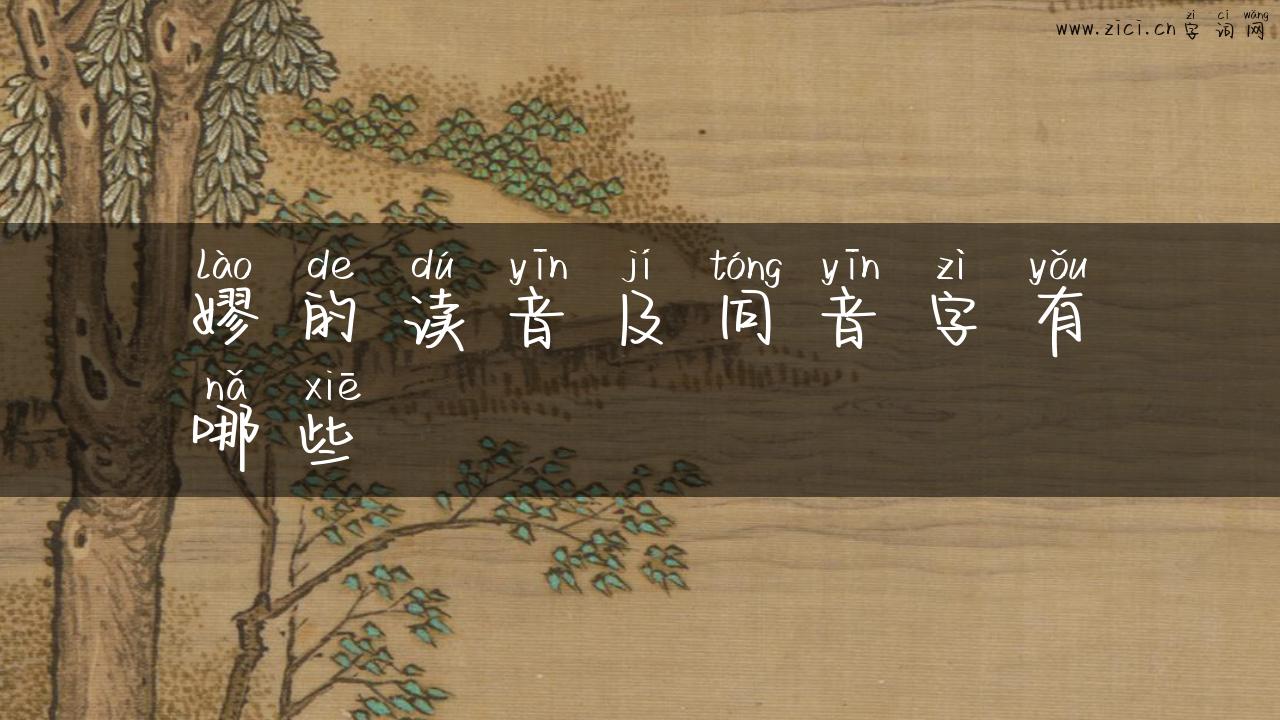 zì cí wǎng
www.zici.cn字词网
lào de dú yīn jí tóng yīn zì yǒu
嫪的读音及同音字有
nǎ xiē
哪些